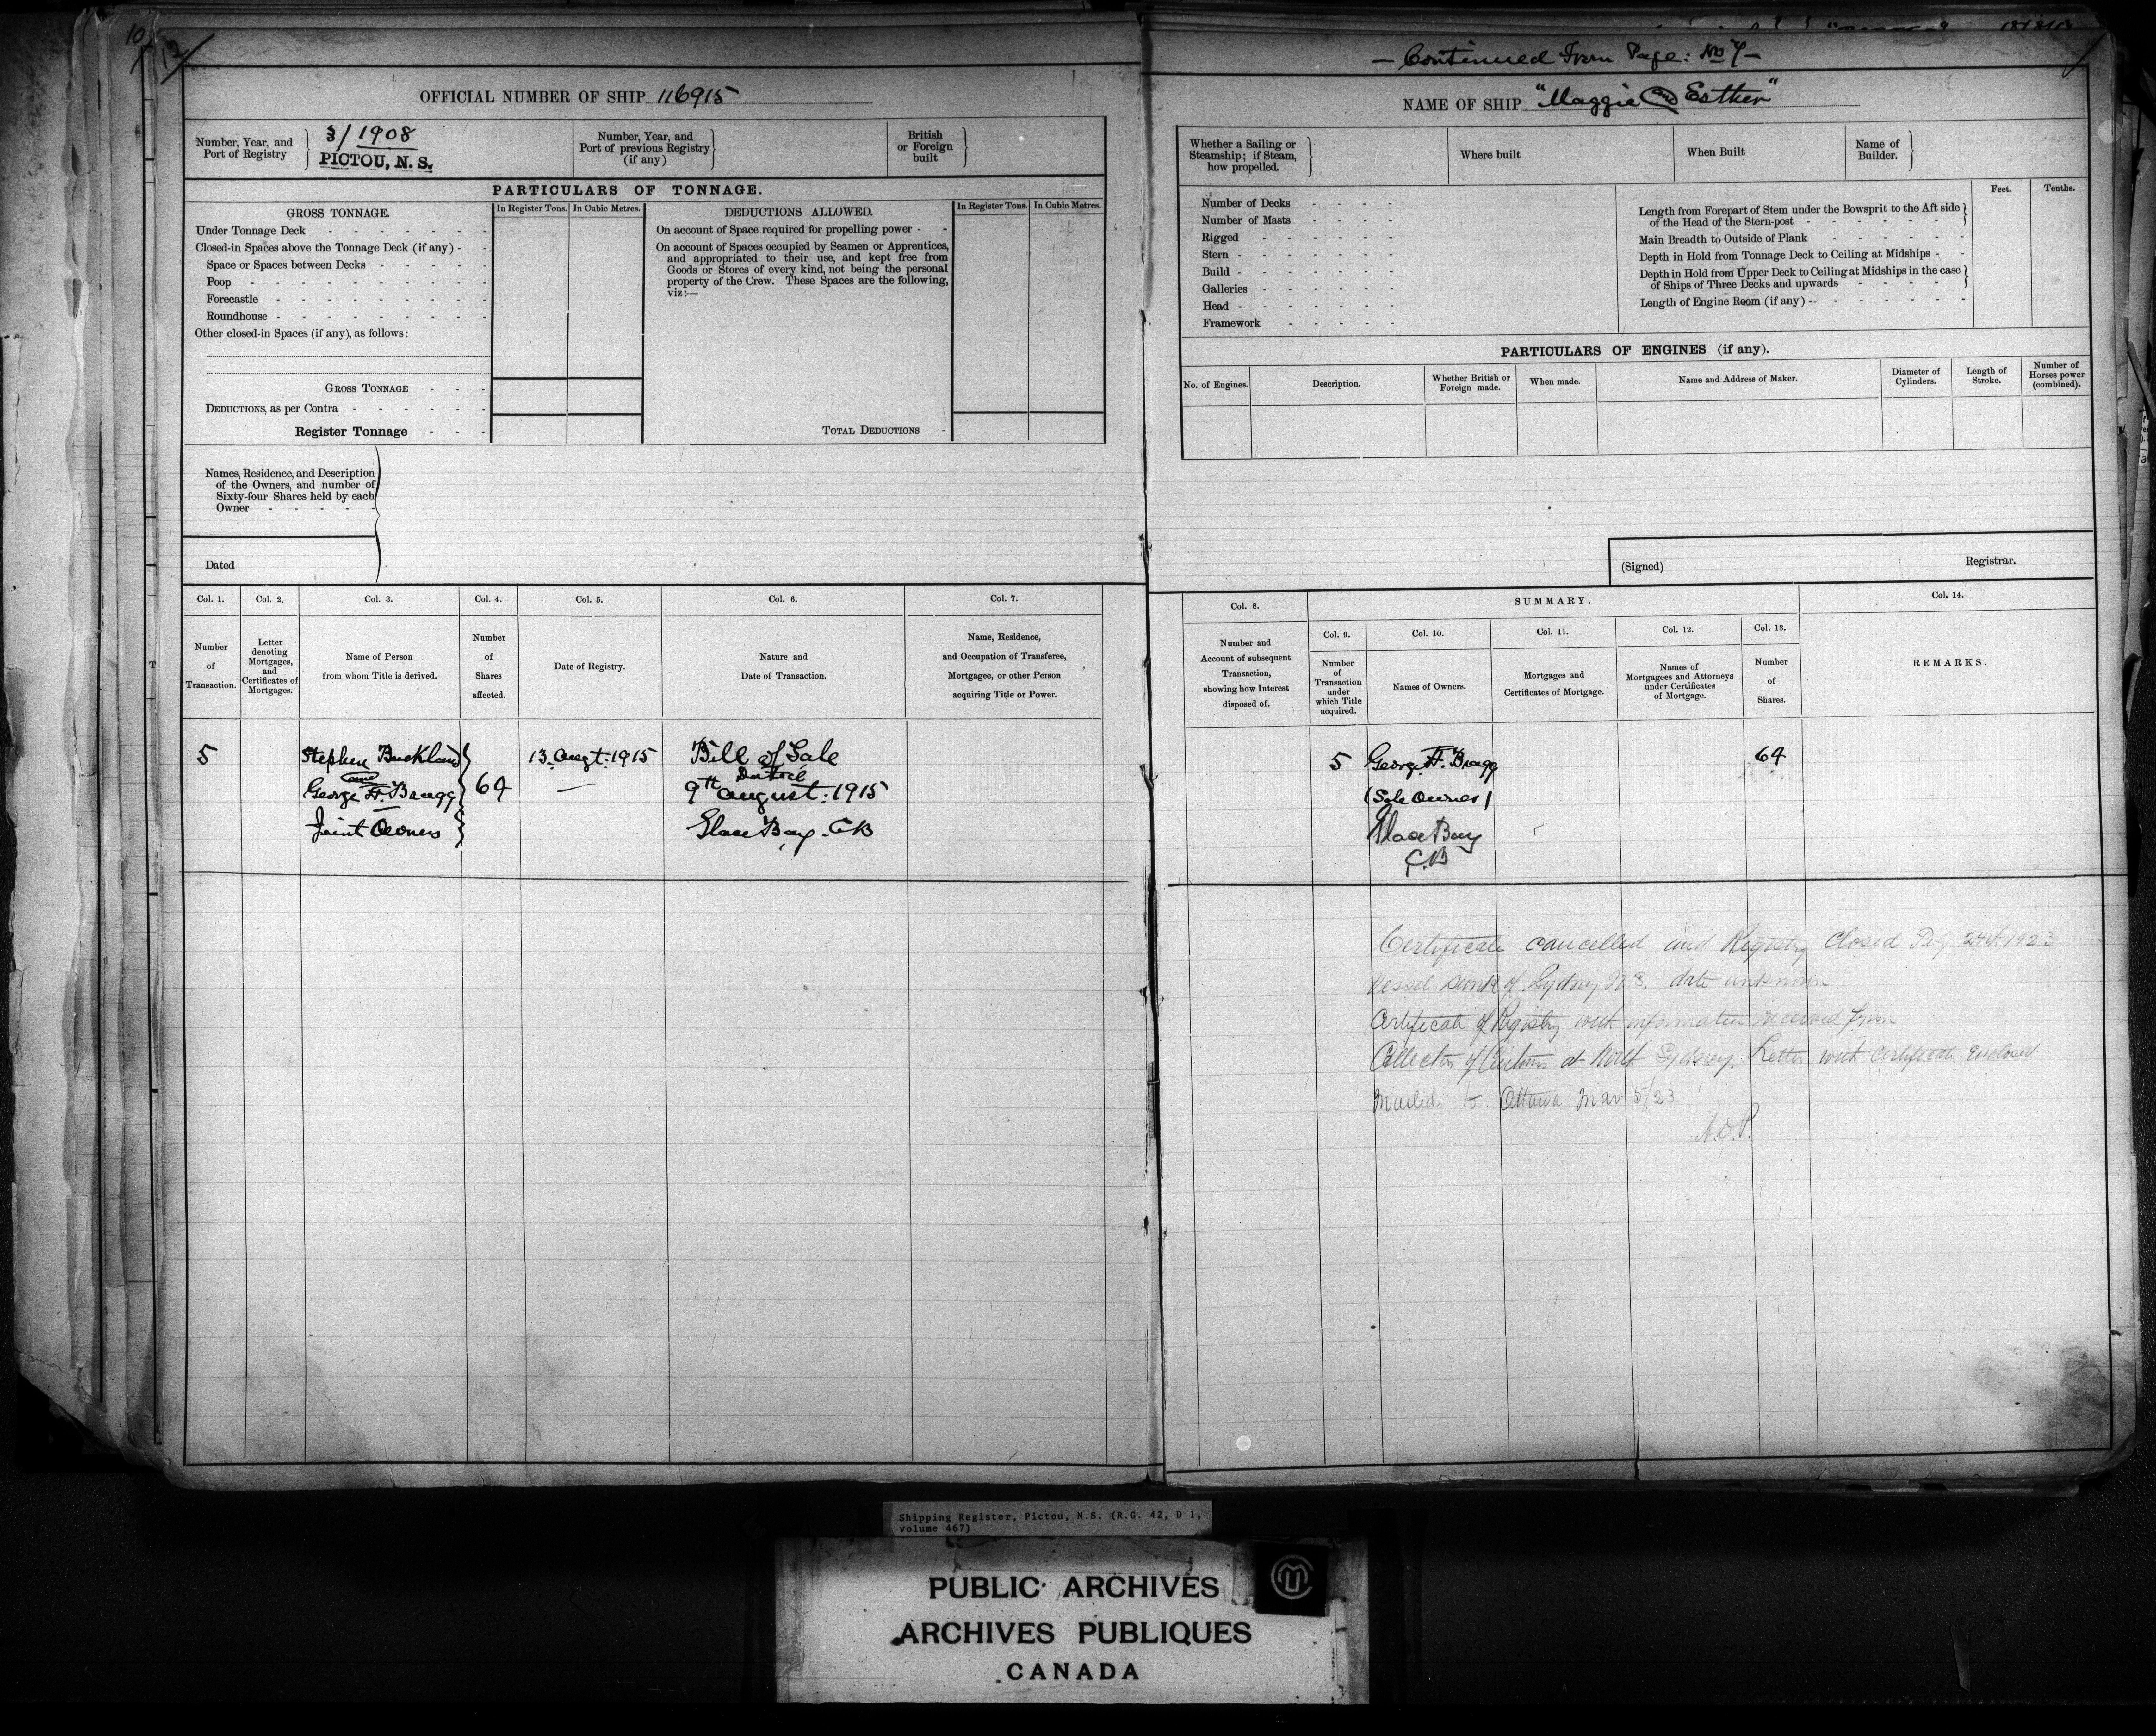 10
12
OFFICIAL NUMBER OF SHIP 116915
Number, Year, and
Port of Registry
3/1908
PICTOU, N. S.
Number, Year, and
Port of previous Registry
(if any)
British
or Foreign
built
PARTICULARS OF TONNAGE.
GROSS TONNAGE.
In Register Tons.
In Cubic Metres.
DEDUCTIONS ALLOWED.
In Register Tons.
In Cubic Metres.
Under Tonnage Deck
Closed-in Spaces above the Tonnage Deck (if any)
Space or Spaces between Decks
Poop
Forecastle
Roundhouse
Other closed-in Spaces (if any), as follows:
GROSS TONNAGE
DEDUCTIONS, as per Contra
Register Tonnage
On account of Space required for propelling power
On account of Spaces occupied by Seamen or Apprentices,
and appropriated to their use, and kept free from
Goods or Stores of every kind, not being the personal
property of the Crew. These Spaces are the following,
viz:—
TOTAL DEDUCTIONS
Names, Residence, and Description
of the Owners, and number of
Sixty-four Shares held by each
Owner
Dated
Col. 1.
Col. 2.
Col. 3.
Col. 4.
Col. 5.
Col. 6.
Col. 7.
Number
of
Transaction.
Letter
denoting
Mortgages,
and
Certificates of
Mortgages.
Name of Person
from whom Title is derived.
Number
of
Shares
affected.
Date of Registry.
Nature and
Date of Transaction.
Name, Residence,
and Occupation of Transferee,
Mortgagee, or other Person
acquiring Title or Power.
5
Stephen Buckland
and
George H. Bragg
Joint Owners
64
13 Augt: 1915
Bill of Sale
Dated
9th August: 1915
Glace Bay. CB
— Continued From Page: No 7 —
NAME OF SHIP "Maggie and Esther"
Whether a Sailing or
Steamship; if Steam,
how propelled.
Where built
When Built
Name of
Builder.
Number of Decks
Number of Masts
Rigged
Stern
Build
Galleries
Head
Framework
Feet.
Tenths.
Length from Forepart of Stem under the Bowsprit to the Aft side
of the Head of the Stern-post
Main Breadth to Outside of Plank
Depth in Hold from Tonnage Deck to Ceiling at Midships
Depth in Hold from Upper Deck to Ceiling at Midships in the case
of Ships of Three Decks and upwards
Length of Engine Room (if any)
PARTICULARS OF ENGINES (if any).
No. of Engines.
Description.
Whether British or
Foreign made.
When made.
Name and Address of Maker.
Diameter of
Cylinders.
Length of
Stroke.
Number of
Horses power
(combined).
(Signed)
Registrar.
Col. 8.
SUMMARY.
Col. 14.
Number and
Account of subsequent
Transaction,
showing how Interest
disposed of.
Col. 9.
Col. 10.
Col. 11.
Col. 12.
Col. 13.
Number
of
Transaction
under
which Title
acquired.
Names of Owners.
Mortgages and
Certificates of Mortgage.
Names of
Mortgagees and Attorneys
under Certificates
of Mortgage.
Number
of
Shares.
REMARKS.
5
George H. Bragg
(Sole Owner)
Glace Bay
C.B
64
Certificate cancelled and Registry Closed 24th 1923
Vessel sunk of Sydney N S. date unknown
Certificate of Registry with information received from
Collector of Customs at North Sydney. Letter with Certificate enclosed
mailed to Ottawa Mar 5/23
Shipping Register, Pictou, N.S. (R.G. 42, D 1,
volume 467)
PUBLIC ARCHIVES
ARCHIVES PUBLIQUES
CANADA